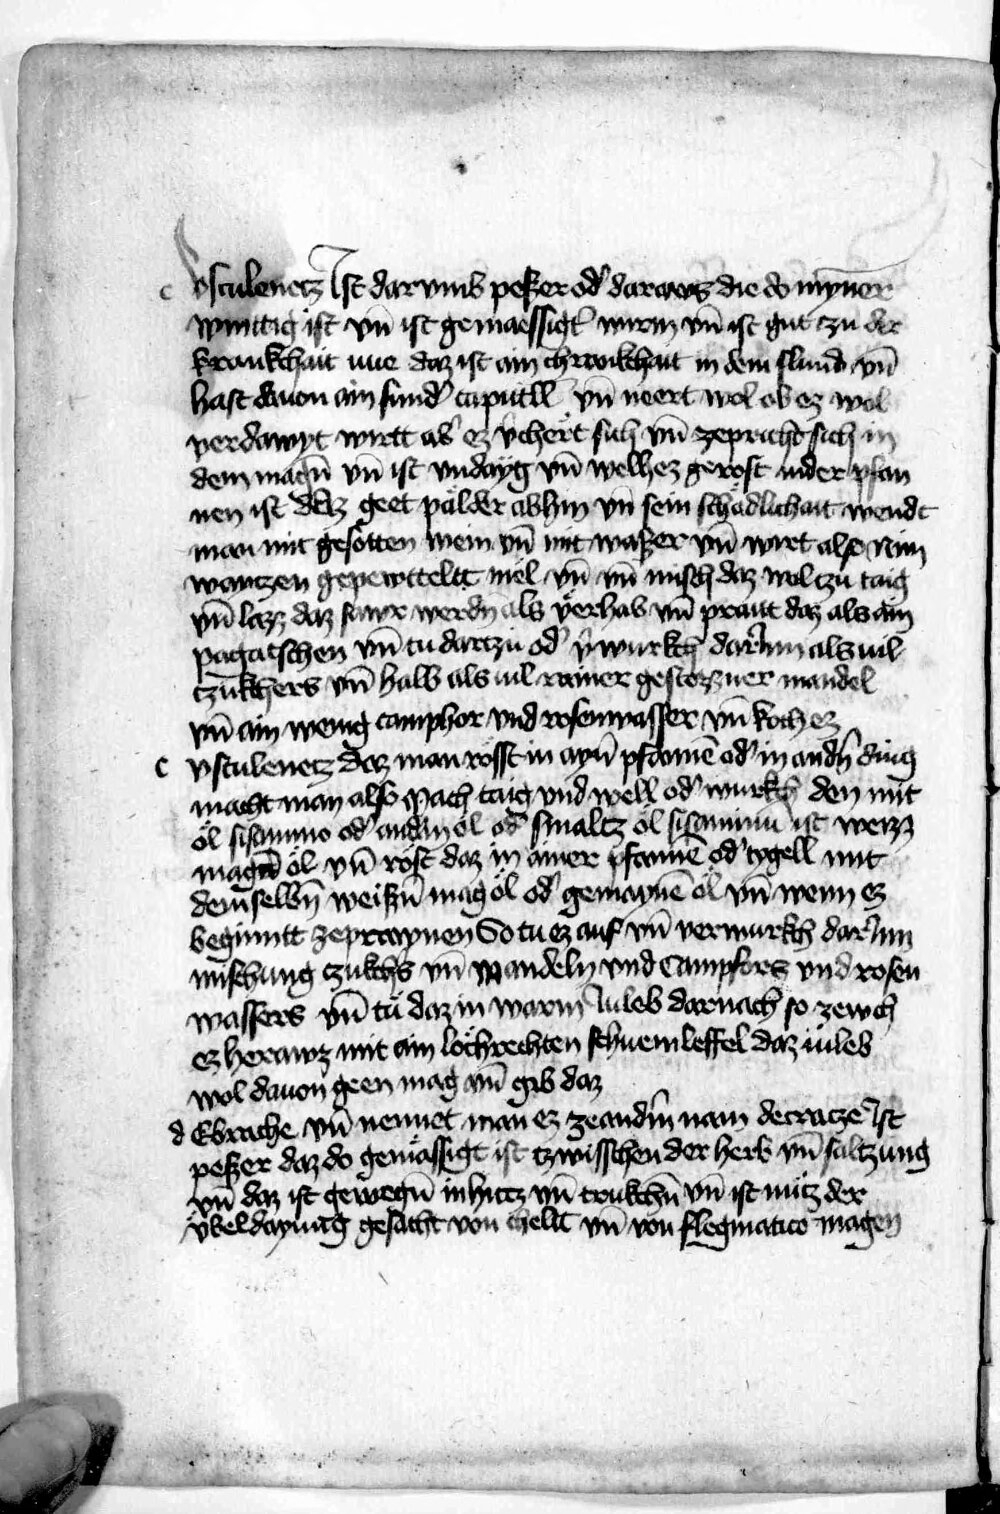 c vsculenetz Ist darvmb peßer od' darawß die do mynner
winttig ist vn̄ ist gemaessigt' wirm vn̄ ist gut tzu der
krankchait uue daz ist ain chrankchait in dem slund vn̄
hast dauon ain sund' caputell vn̄ neert wol ob ez wol
verdawyt wirtt ab' ez v'chert sich vn̄ zepricht sich in
dem magn̄ vn̄ ist vndayg vn̄ welhez gerost in der pfan
nen ist daz geet pälder abhin vn̄ sein schädlichait wendt
man mit gesotten wein vn̄ mit waßer vn̄ wirt also Nim
waitzen gepewtteltt mel vn̄ vn̄ misch daz wol tzu taig
vn̄ lazz daz sawr werdn̄ als verhab vn̄ praut daz als ain
pagatschen vn̄ tu dartzu od' v'wurkch dar'inn als uil
tzukchers vn̄ halb als uil rainer gestozzner mandel
vn̄ ain wenig camphor vnd rosenwasser vn̄ koch ez
c vsculenetz daz man rosst in ayn' pfannē od' in andn̄ ding
macht man also Mach taig vnd well od' wurkch den mit
öl sisamino od' andm̄ öl od' smaltz öl sisaminū ist weizz
magē öl vn̄ röst daz in ainer pfannē od' tygell mit
demselbn̄ weißn̄ mag öl od' gemaynē öl vn̄ wenn ez
begunntt zeprawnen So tu ez auf vn̄ verwurkch dar'inn
mischung tzukchs vn̄ Mandeln vnd Campfors vnd rosen
wassers vn̄ tu daz in warm Juleb darnach so zewch
ez herawz mit ain löchrechten schuemleffel daz iuleb
wol dauon geen mag vn̄ gib daz
d Ebrache vn̄ nennet man ez ze andm̄ nam decracze Ist
peßer daz do gemässigt ist tzwisschen der herb vn̄ saltzung
vn̄ daz ist gewegn̄ in hittz vn̄ trukchn̄ vn̄ ist nütz der
vbeldayung gesacht von chellt vn̄ von flegmatico magen